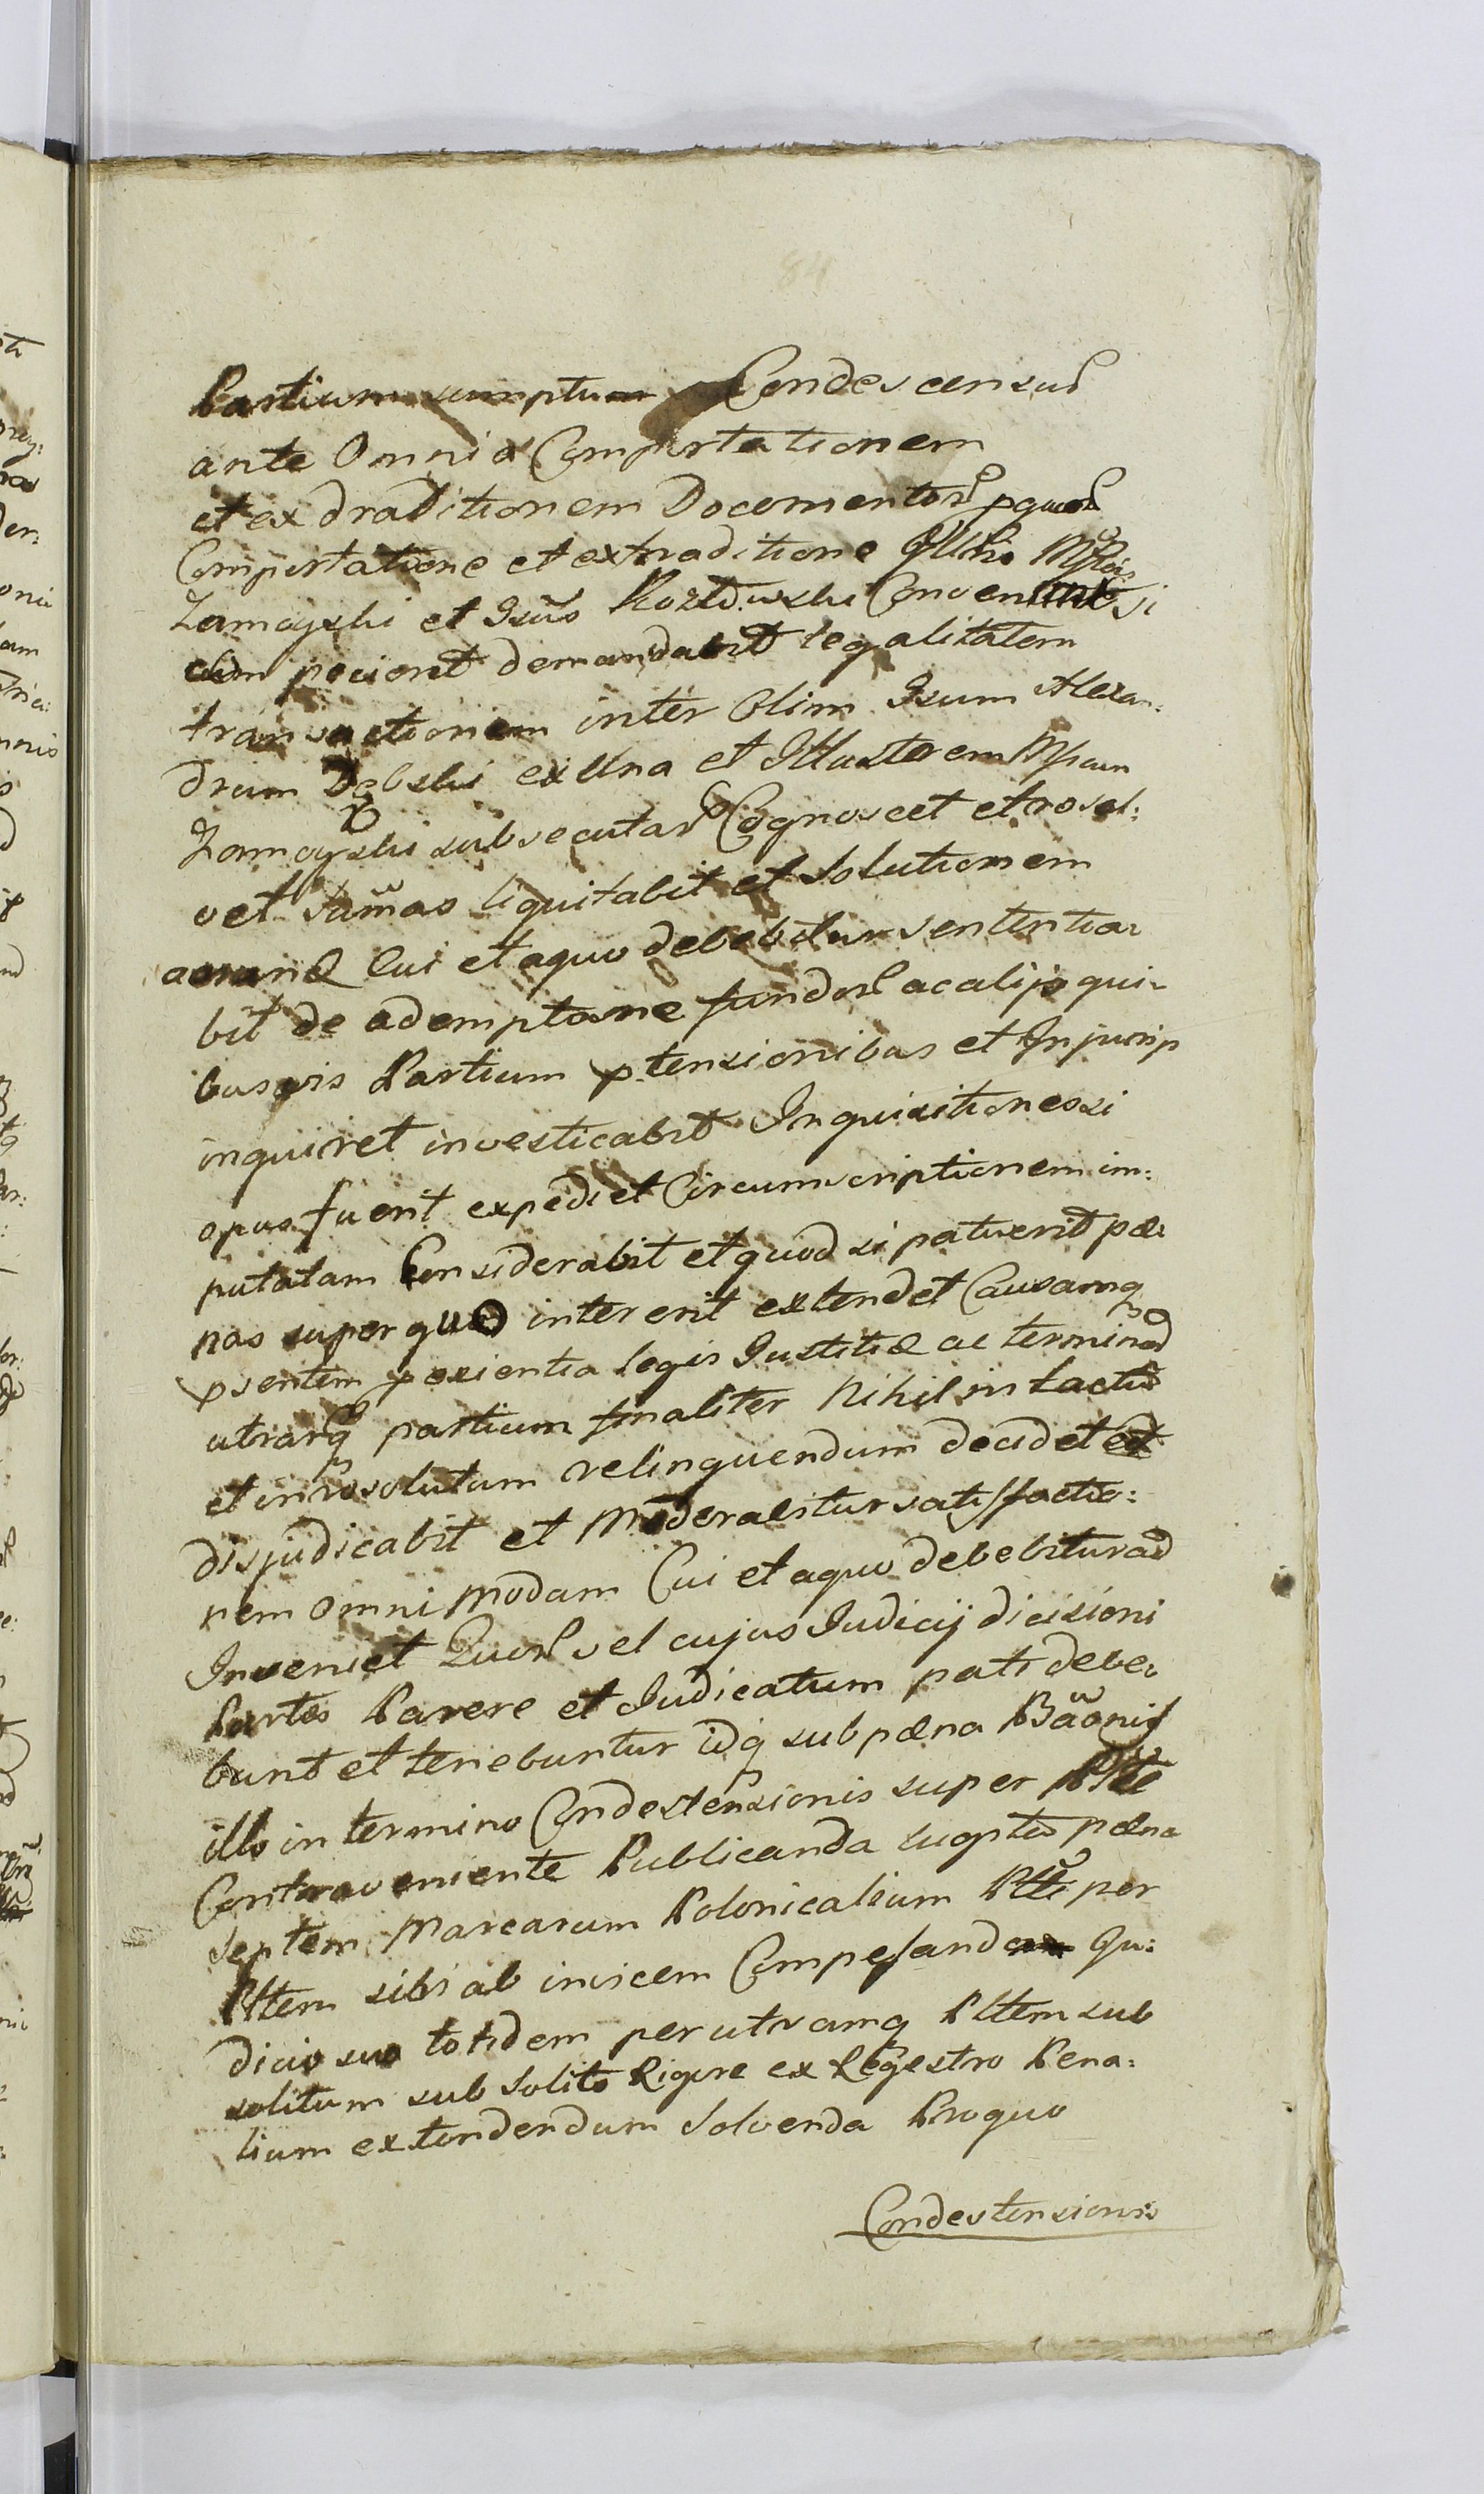 84
Partium sumptum Condescensus
ante Omnia Comportationem
et ex draditionem Documentor̃ pquor̃
Comportatione et extraditione Illtris Mgfcus
Zamoyski et Gsus Kozłowski Convenit si
eam pecierit demandabit legalitatem
transactionem inter Olim Gsum Alexan:
drum Dębski ex Una et Illustrem Mgcum
Zamoyski subsecutar̃ Cognoscet et resol:
vet Sum̃as liquitabit et Solutionem
earund Cui et aquo debebitur sententia:
bit de ademptione fundor̃ ac alijs qui:
busvis Partium ptensionibus et Injurijs
inquiret investicabit Inquisitiones si
opus fuerit expediet Circumscriptionem im:
putatam Considerabit et quod si patuerit pæ:
nas super quo intererit extendet Causamq
psentem pexientia legis Justitiæ ac terminor̃
utrarq partium finaliter Nihil in tactũ
et inresolutum relinquendum decidet et
disjudicabit et Moderabitur satisfactio:
nem omni modam Cui et aquo debebitur ad
Inveniet Quor̃ vel cujus Judicij dicisioni
Partes Parere et Judicatum pati debe:
bunt et tenebuntur idq sub pæna Bãonis
illo in termino Condestensionis super Ptte
Contraveniente Publicanda lugptis pæna
Septem Marcarum Polonicalium Ptti per
Pttem sibi ab invicem Compesanda Ju:
dicio suo totidem per utramq Pttem sub
solitum sub Solito Rigore ex Regestro Pena:
lium extendendum Solvenda Proquo
Condestensionis